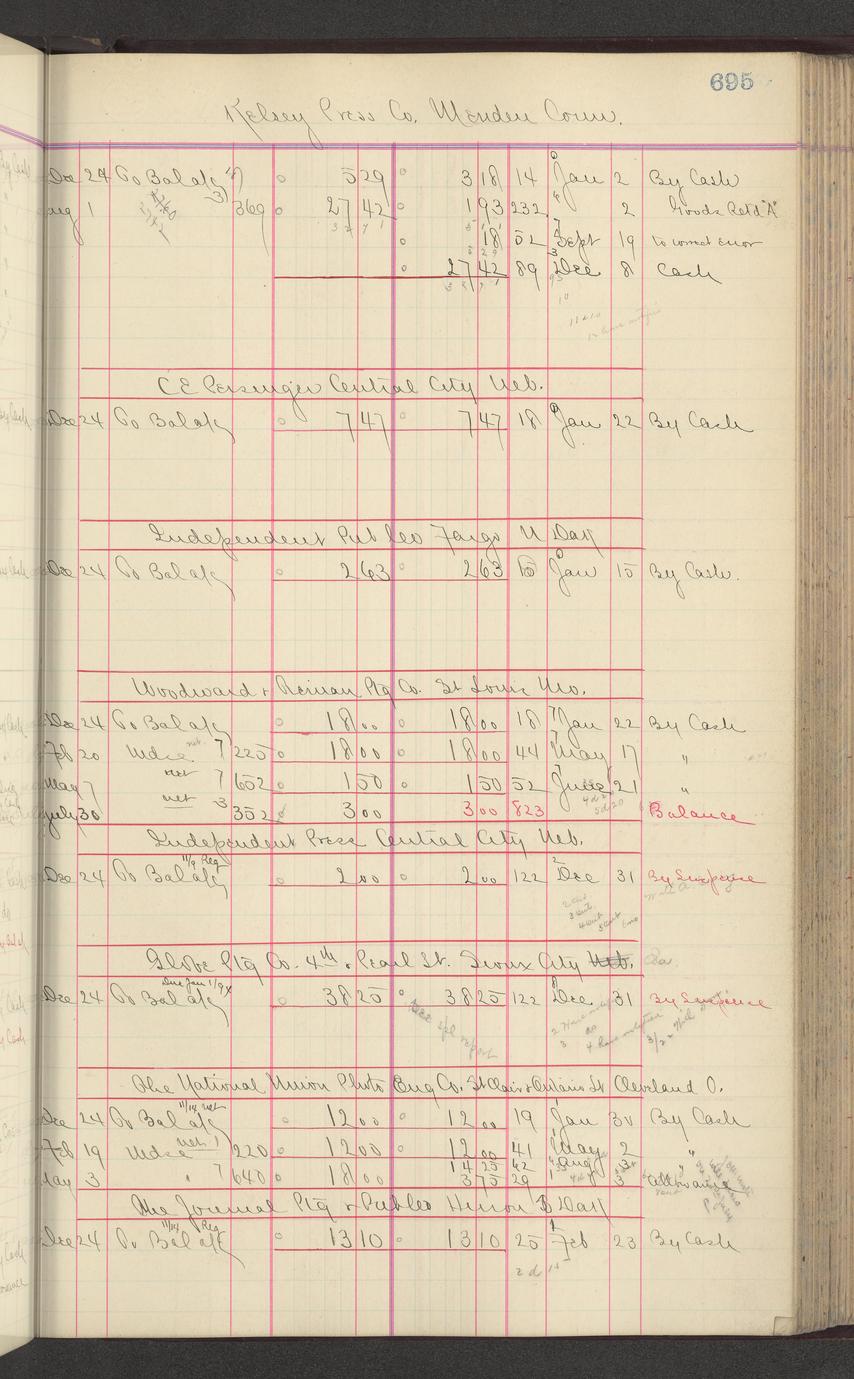 695
Kelsey Press Co. Meriden Conn.
Dec 24 To Bal a/c 5 29 3 18 14 Jan 2 By Cash
Aug 1 369 27 42 1 93 232 2 Goods Retd "A"
18 52 Sept 19 to correct error
27 42 89 Dec 8 Cash
C E Persinger Central City Neb.
Dec 24 To Bal a/c 7 47 7 47 18 Jan 22 By Cash
Independent Pub Co Fargo N Dak
Dec 24 To Bal a/c 2 63 2 63 Jan 15 By Cash.
Woodward & Ptg Co. St Louis Mo.
Dec 24 To Bal a/c 18 00 18 00 18 Jan 22 By Cash
Feb 20 Mdse net 7 225 18 00 18 00 44 May 17 "
May 7 net 7 652 1 50 1 50 52 June 21 "
July 30 net 3 352 3 00 3 00 823 Balance
Independent Press Central City Neb.
Dec 24 To Bal a/c 11/9 Reg 2 00 2 00 122 Dec 31 By Suspense
Globe Ptg Co. 4th & Pearl St. Sioux City Neb.
Dec 24 To Bal a/c 38 25 38 25 122 Dec 31 By Suspense
See spl report
The National Union Photo Eng Co. St Clair & Ontario St Cleveland O.
Dec 24 To Bal a/c 11/14 net 12 00 12 00 19 Jan 30 By Cash
Feb 19 Mdse net 1 220 12 00 12 00 41 May 2 "
May 3 " 7 640 18 00 14 25 62 Aug 3 "
3 75 29 3 Allowance
The Journal Ptg & Pub Co Huron S Dak
Dec 24 To Bal a/c 11/14 Reg 13 10 13 10 25 Feb 23 By Cash